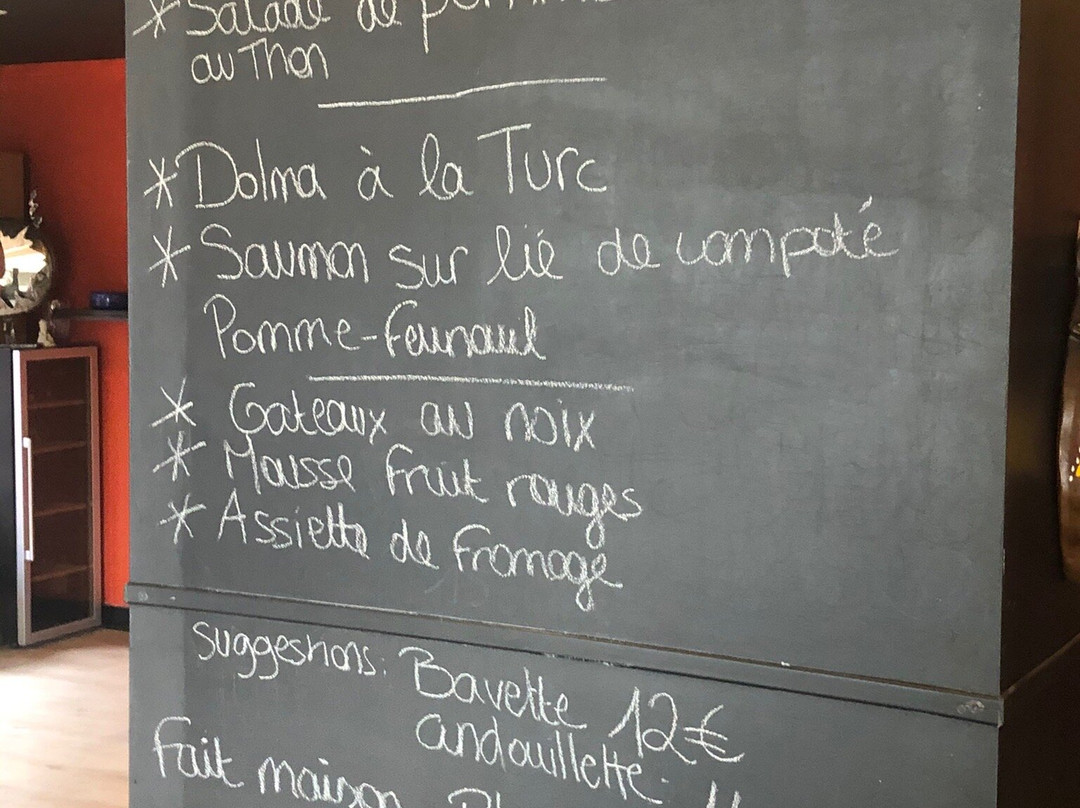 * Salade de
au Thon
* Dolma à la Turc
* Saumon sur lié de compoté
Pomme-Feunouil
* Gateaux au noix
* Mousse Fruit rouges
* Assiette de Fromage
Suggestions: Bavette 12€
andouillette
Fait maison